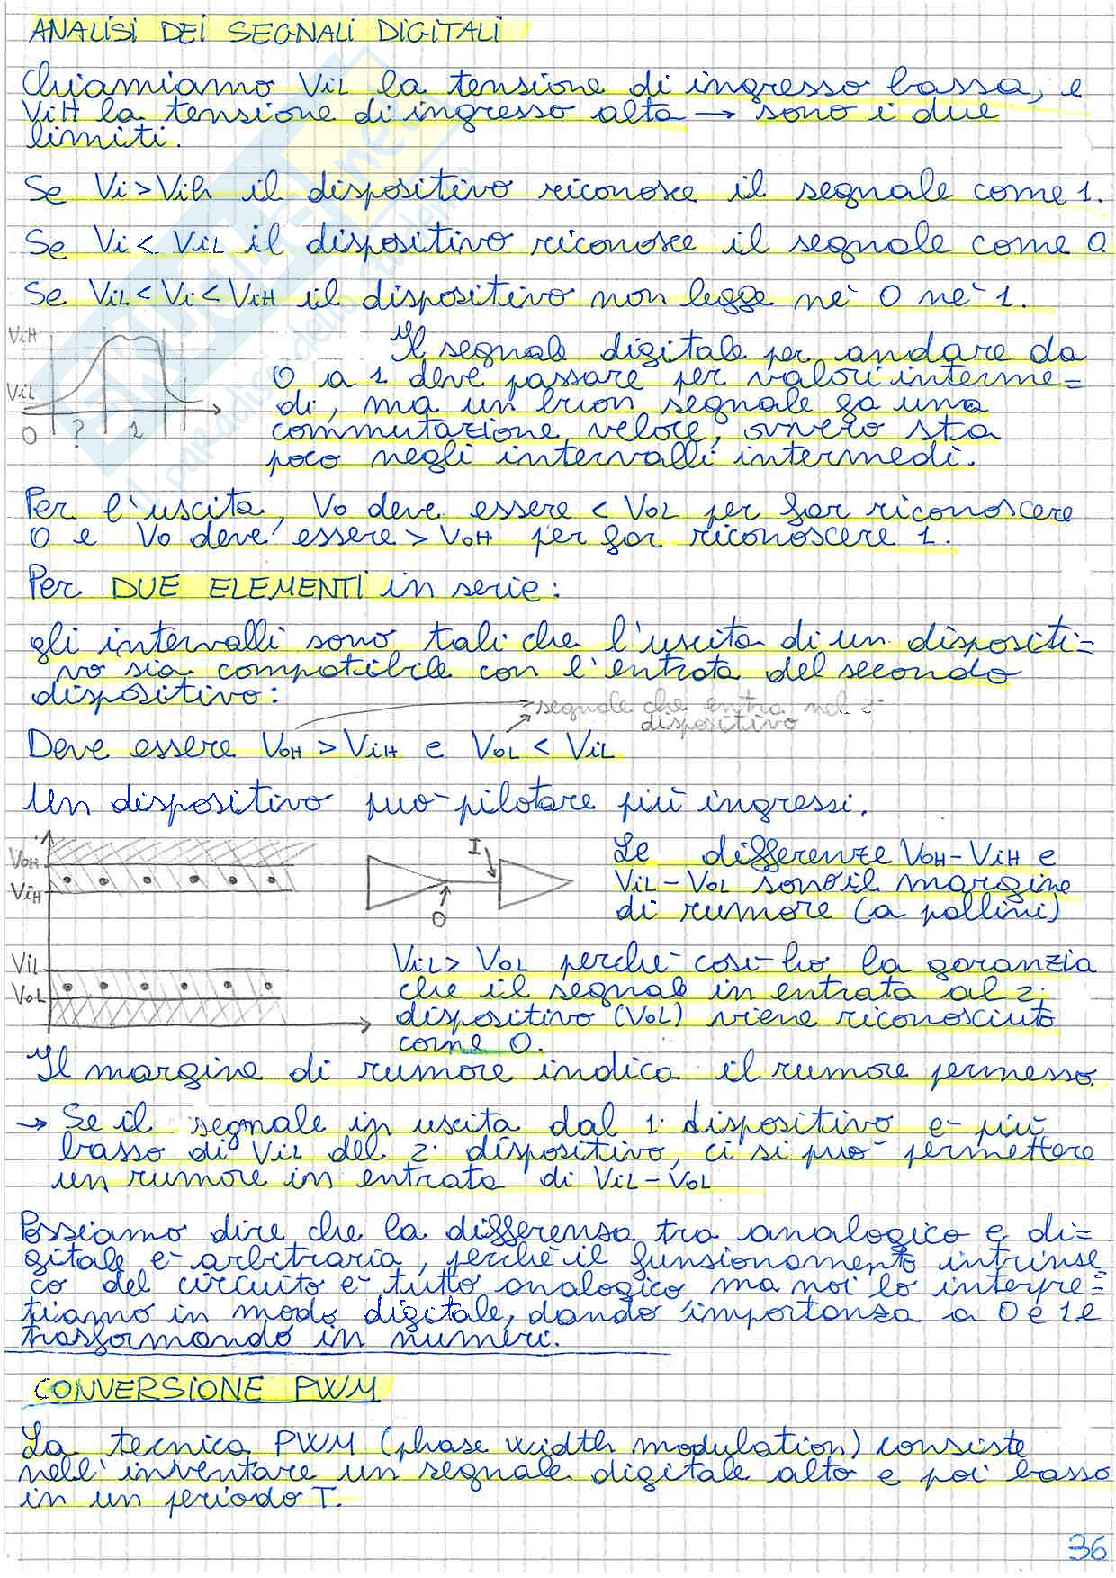 ANALISI DEI SEGNALI DIGITALI
Chiamiamo ViL la tensione di ingresso bassa, e
ViH la tensione di ingresso alta → sono i due
limiti.
Se Vi > Vih il dispositivo riconosce il segnale come 1.
Se Vi < ViL il dispositivo riconosce il segnale come 0
Se ViL < Vi < ViH il dispositivo non legge nè 0 nè 1.
ViH
ViL
0 ? 1
Il segnale digitale per andare da
0 a 1 deve passare per valori interme=
di, ma un buon segnale fa una
commutazione veloce, ovvero sta
poco negli intervalli intermedi.
Per l'uscita, Vo deve essere < VoL per far riconoscere
0 e Vo deve essere > VoH per far riconoscere 1.
Per DUE ELEMENTI in serie:
gli intervalli sono tali che l'uscita di un dispositi=
vo sia compatibile con l'entrata del secondo
dispositivo:
segnale che entra nel 2°
dispositivo
Deve essere VoH > ViH e VoL < ViL
Un dispositivo può pilotare più ingressi.
VoH
ViH
ViL
VoL
I
O
Le differenze VoH - ViH e
ViL - VoL sono il margine
di rumore (a pallini)
ViL > VoL perché così ho la garanzia
che il segnale in entrata al 2°
dispositivo (VoL) viene riconosciuto
come 0.
Il margine di rumore indica il rumore permesso
→ Se il segnale in uscita dal 1° dispositivo è più
basso di ViL del 2° dispositivo, ci si può permettere
un rumore in entrata di ViL - VoL
Possiamo dire che la differenza tra analogico e di=
gitale è arbitraria, perché il funzionamento intrinse
co del circuito è tutto analogico ma noi lo interpre=
tiamo in modo digitale, dando importanza a 0 e 1 e
trasformando in numeri.
CONVERSIONE PWM
La tecnica PWM (phase width modulation) consiste
nell'inventare un segnale digitale alto e poi basso
in un periodo T.
36